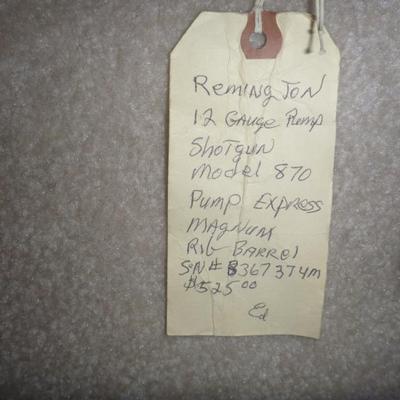 Remington
12 Gauge Pump
Shotgun
Model 870
Pump Express
Magnum
Rib Barrel
SN# 8367374M
$525.00
Ed